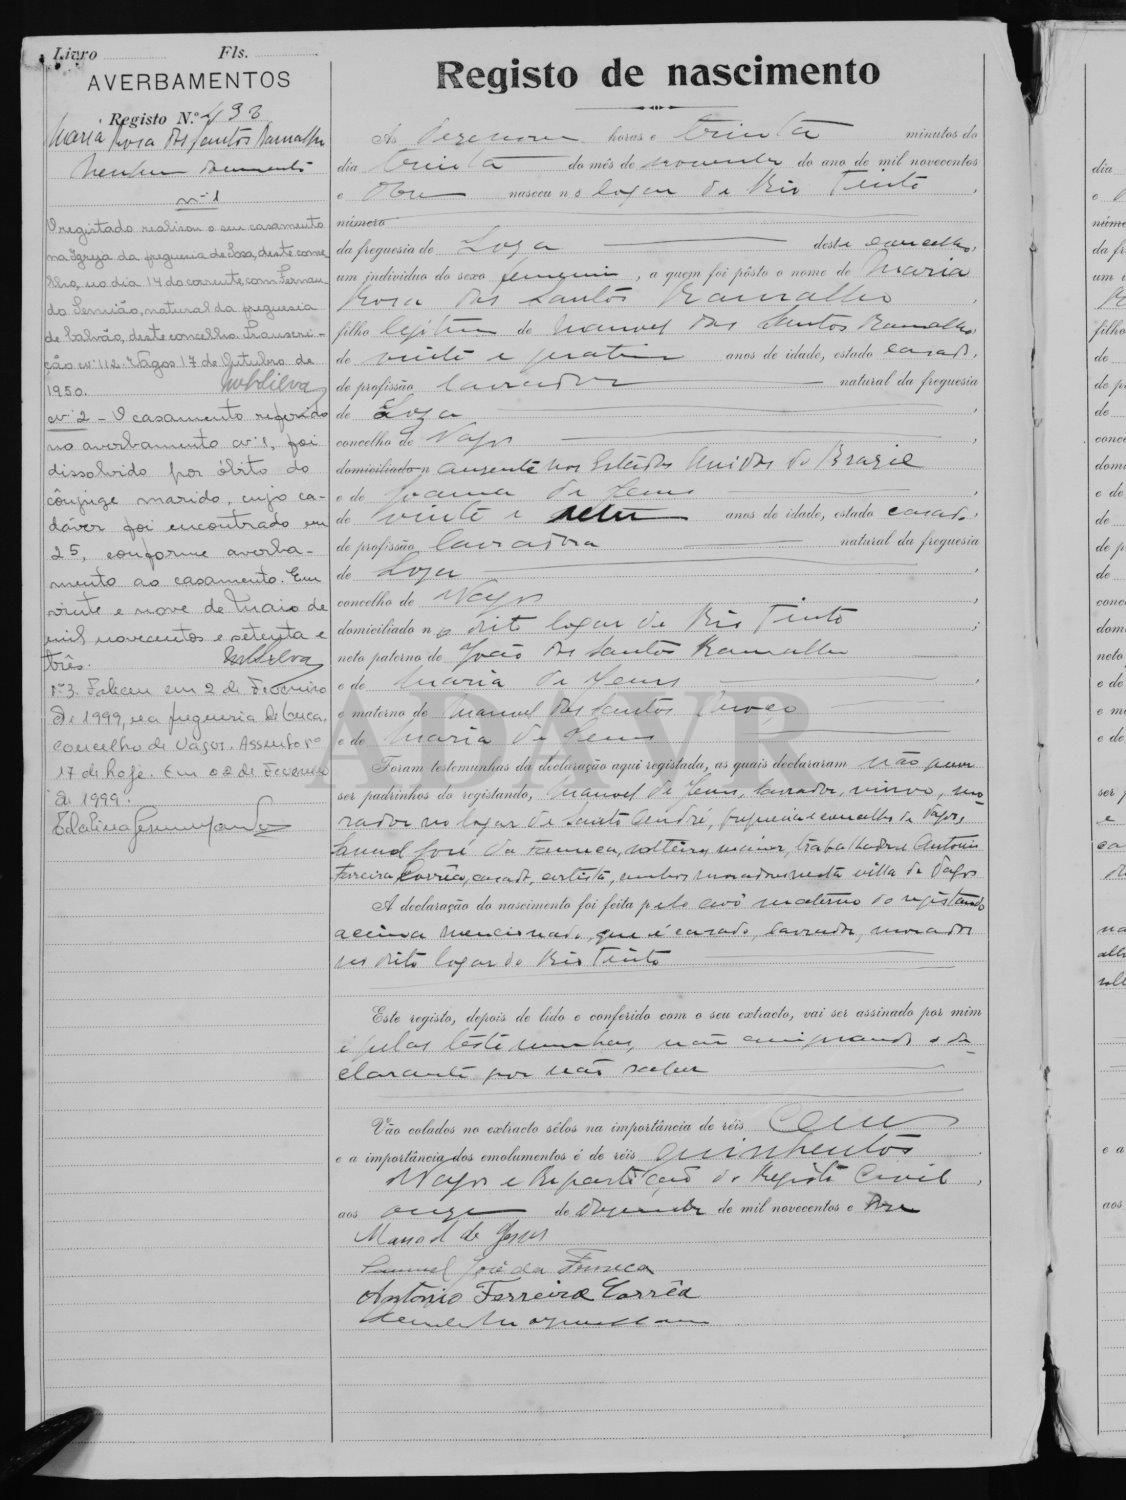 Livro Fls.
AVERBAMENTOS
Registo N.º 493
Maria Rosa dos Santos Ramalho
Nenhum documento
n.º 1
O registado realisou o seu casamento
na Igreja da freguesia de Soza, deste conce
lho, no dia 14 do corrente com Fernan
do Semião, natural da freguesia
de Calvão, deste concelho. Transcri-
ção n.º 112. Vagos 17 de Outubro de
1950.
n.º 2 - O casamento referido
no averbamento n.º 1, foi
dissolvido por óbito do
cônjuge marido, cujo ca-
dáver foi encontrado em
25, conforme averba-
mento ao casamento. Em
vinte e nove de Maio de
mil novecentos e setenta e
três.
N.º 3. Faleceu em 2 de Fevereiro
de 1999, na freguesia de
concelho de Vagos. Assento nº
17 de hoje. Em 02 de Fevereiro
de 1999.
Registo de nascimento
Ás dezenove horas e trinta minutos do
dia trinta do mês de novembro do ano de mil novecentos
e onze nasceu no lugar de Rio Tinto,
número
da freguesia de Soza deste concelho,
um indivíduo do sexo feminino, a quem foi pôsto o nome de Maria
Rosa dos Santos Ramalho,
filho legitimo de Manuel dos Santos Ramalho,
de vinte e quatro anos de idade, estado casado,
de profissão lavrador natural da freguesia
de Soza,
concelho de Vagos,
domiciliado n ausente nos Estados Unidos do Brazil
e de Joana de Jesus,
de vinte e sete anos de idade, estado casada,
de profissão lavradora natural da freguesia
de Soza,
concelho de Vagos,
domiciliado no dito lugar de Rio Tinto;
neto paterno de João dos Santos Ramalho
e de Maria de Jesus,
e materno de Manuel dos Santos
e de Maria de Jesus
Foram testemunhas da declaração aqui registada, as quais declararam não querer
ser padrinhos do registando, Manuel de Jesus, lavrador, viuvo, mo-
rador no lugar de Santo André, freguesia e concelho de Vagos,
Samuel José da Fonseca, solteiro, maior, trabalhador e Antonio
Ferreira Corrêa, casado, artista, ambos moradores nesta villa de Vagos
A declaração do nascimento foi feita pelo avô materno do registando
acima mencionado, que é casado, lavrador, morador
no dito lugar de Rio Tinto
Este registo, depois de lido e conferido com o seu extracto, vai ser assinado por mim
e pelas testemunhas, não assignando o de-
clarante por não saber
Vão colados no extracto sêlos na importância de réis Cem
e a importância dos emolumentos é de réis quinhentos
Vagos e Repartição do Registo Civil,
aos onze de Dezembro de mil novecentos e onze
Manoel de Jesus
Samuel José da Fonseca
Antonio Ferreira Corrêa
ADAVR